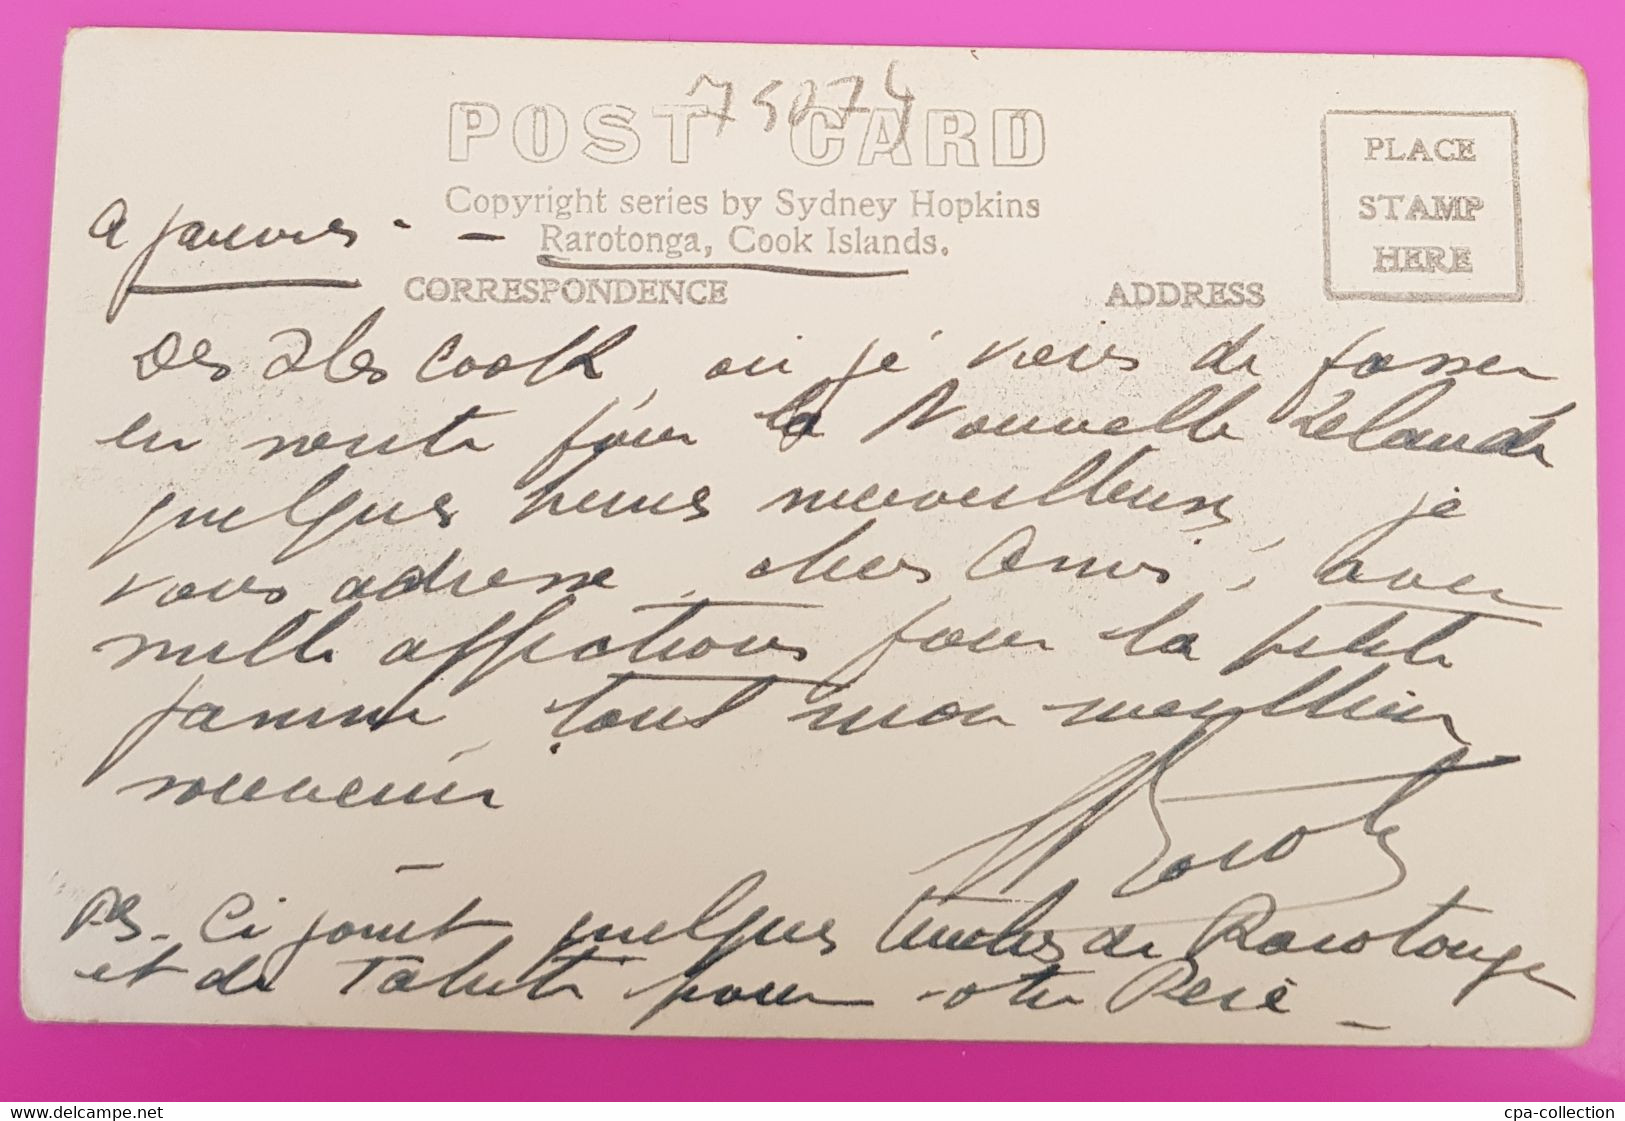 75074
POST CARD
Copyright series by Sydney Hopkins
Rarotonga, Cook Islands.
PLACE
STAMP
HERE
CORRESPONDENCE
ADDRESS
Des Iles Cook, où je viens de passer
en route pour la Nouvelle Zélande
quelques heures merveilleuses, je
vous adresse, chers Amis, avec
mille affections pour la petite
famille, tout mon meilleur
souvenir
PS - Ci joint quelques timbres de Rarotonga
et de Tahiti pour votre Père -
cpa-collection